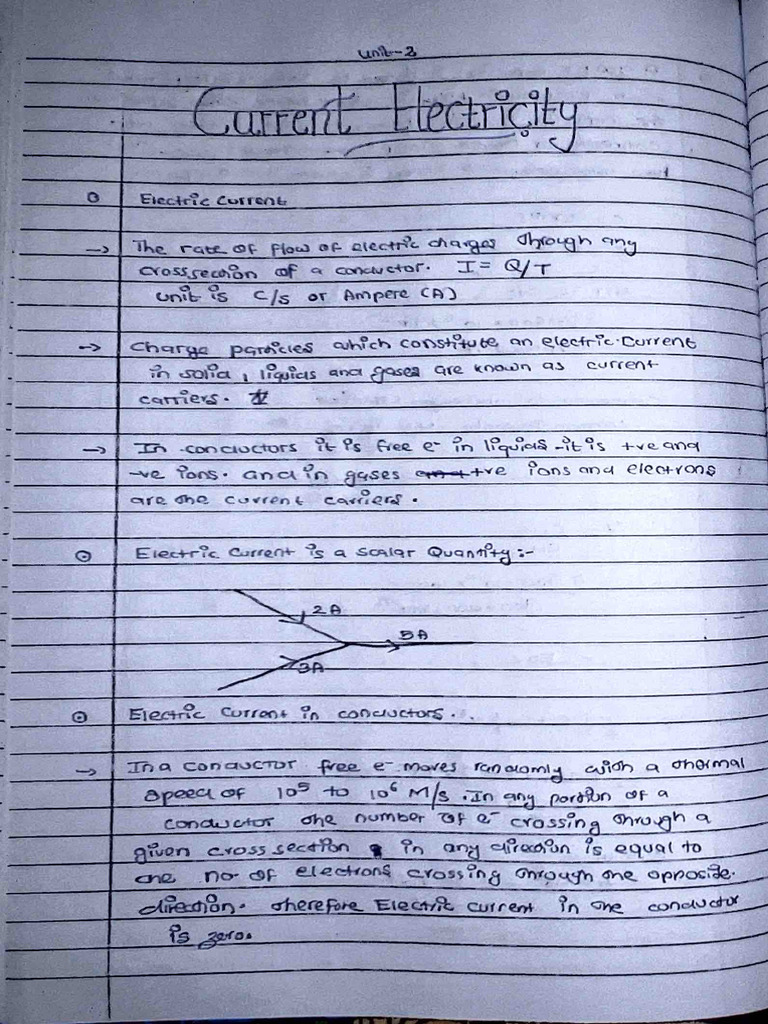 Unit-2
Current Electricity
Electric Current
→ The rate of flow of electric charges through any
cross section of a conductor. I = Q/T
unit is C/s or Ampere (A)
→ Charge particles which constitute an electric current
in solid, liquids and gases are known as current
carriers.
→ In conductors it is free e⁻ in liquids it is +ve and
-ve ions. and in gases +ve ions and electrons
are the current carriers.
Electric Current is a scalar Quantity :-
2A
5A
3A
Electric Current in conductors.
→ In a conductor free e⁻ moves randomly with a thermal
speed of 10⁵ to 10⁶ M/s. In any portion of a
conductor the number of e⁻ crossing through a
given cross section in any direction is equal to
the no of electrons crossing through the opposide
direction. therefore Electric current in the conductor
is zero.